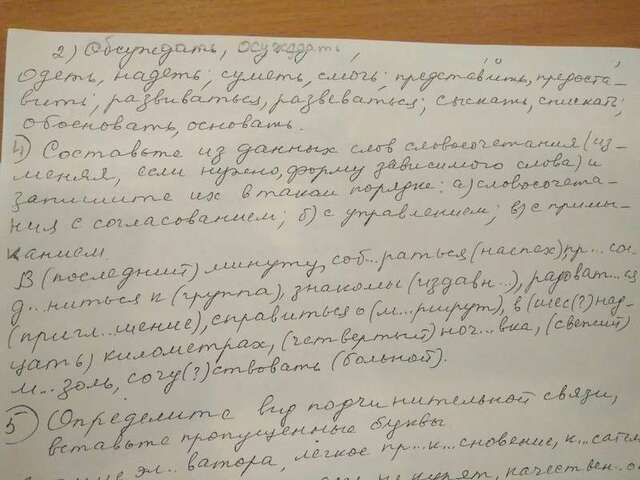 2) Обсуждать, осуждать,
одеть, надеть; суметь, смочь; представить, предоста-
вить; развиваться, развеваться; сыскать, снискать;
обосновать, основать.
4) Составьте из данных слов словосочетания (из-
меняя, если нужно, форму зависимого слова) и
запишите их в таком порядке: а) словосочета-
ния с согласованием; б) с управлением; в) с примы-
канием.
В (последний) минуту, соб...раться (наспех) пр... сое
д...ниться к (группа), знакомы (издавн...), радоват...ся
(пригл...шение), справиться о (м...ршрут), в (шес(?)над-
цать) километрах, (четвертый) ноч...вка, (свежий)
м...золь, сочу(?)ствовать (больной).
5) Определите вид подчинительной связи,
вставьте пропущенные буквы
эл...ватора, лёгкое пр...к...сновение, к...сател
не курят, качествен..о